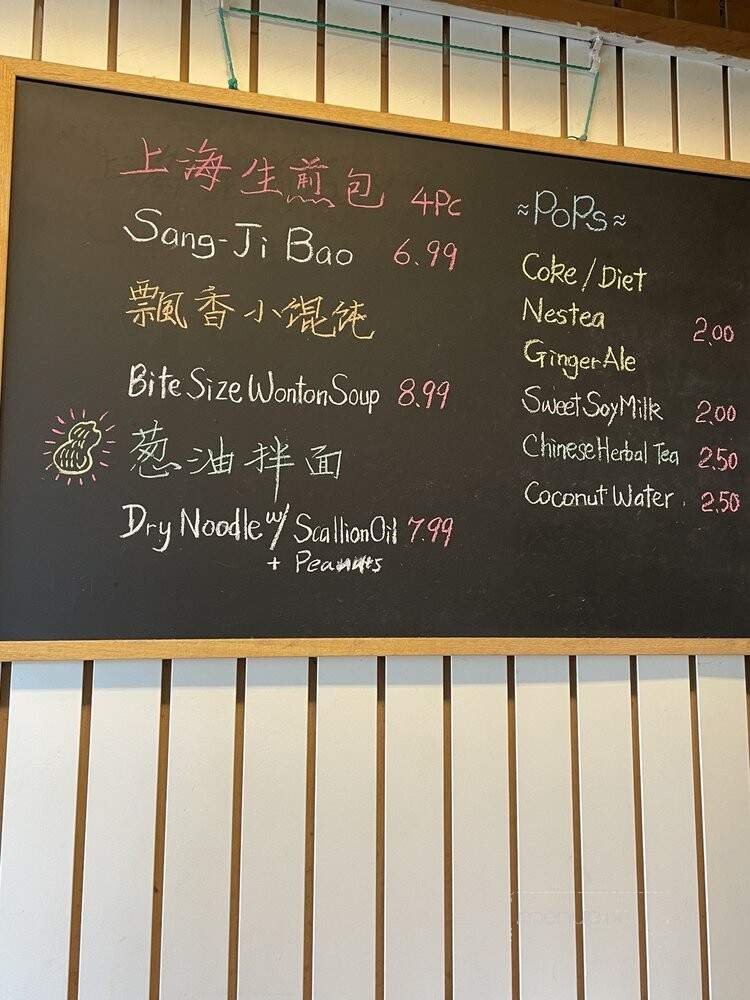 上海生煎包 4Pc
Sang-Ji Bao 6.99
飘香小馄饨
Bite Size Wonton Soup 8.99
葱油拌面
Dry Noodle w/ Scallion Oil 7.99
+ Peanuts
≈PoPs≈
Coke/Diet
Nestea 2.00
Ginger Ale
Sweet Soy Milk 2.00
Chinese Herbal Tea 2.50
Coconut Water. 2.50